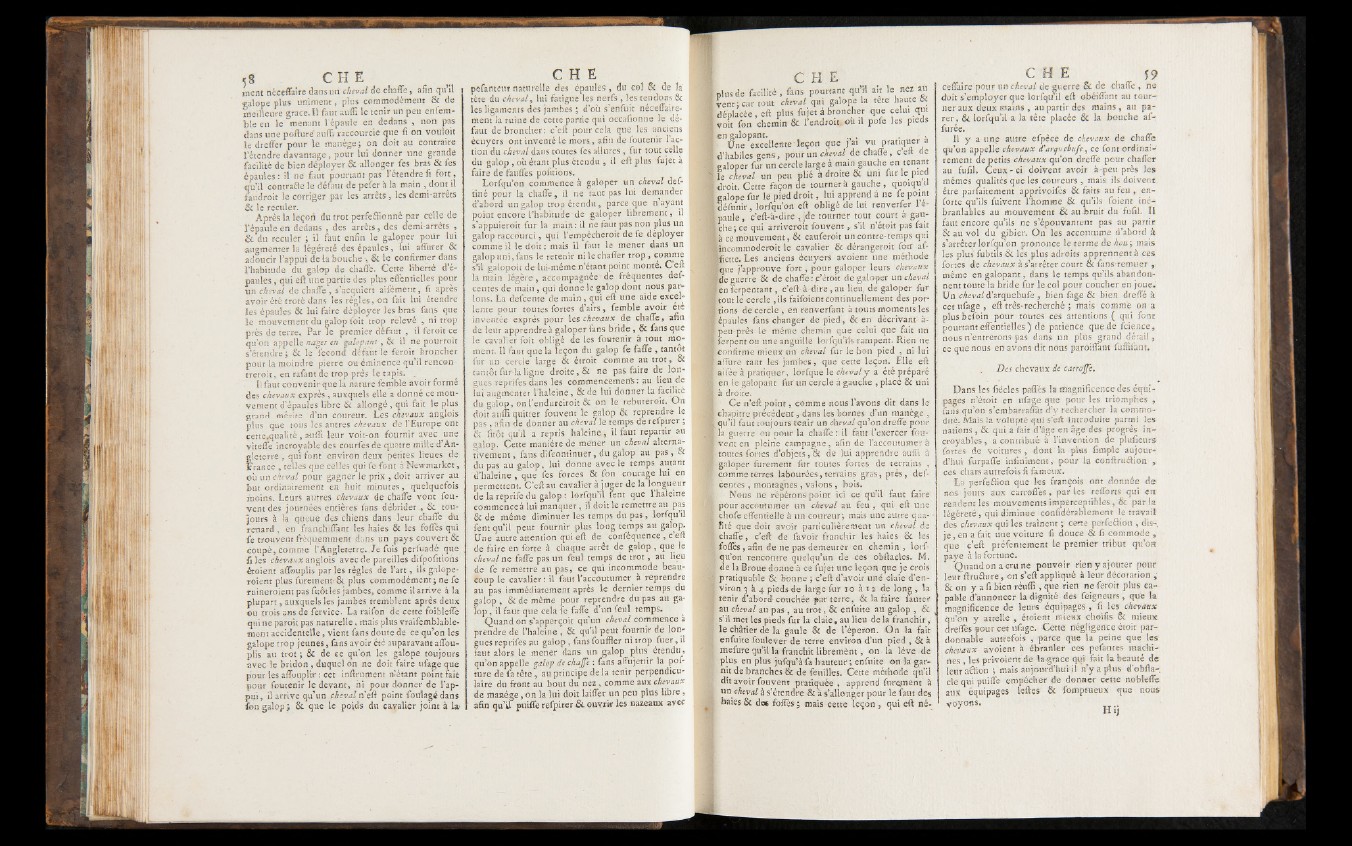 58 CHE
ment nécessaire dans un cheval de chasse, afin qu'il
galope plus uniment, plus commodément & de
meilleure grace. Il faut aussi le tenir un peu ensem-
ble en le menant l'épaule en dedans, non pas
dans une posture aussi raccourcie que si on vouloit
le dresser pour le manège; on doit au contraire
l'étendre davantage, pour lui donner une grande
facilité de bien déployer & allonger ses bras & ses
épaules: il ne faut pourtant pas l'étendre si fort,
qu'il contracte le défaut de peser à la main, dont il
faudroit le corriger par les arrêts, les demi-arrêts
& le reculer.
Après la leçon du trot perfectionné par celle de
l'épaule en dedans, des arrêts, des demi-arrêts,
& du reculer; il faut enfin le galoper pour lui
augmenter la légéreté des épaules, lui assurer &
adoucir l'appui de la bouche, & le confirmer dans
l'habitude du galop de chasse. Cette liberté d'é-
paules, qui est une partie des plus essentielles pour
un cheval de chasse, s'acquiert aisément, si après
avoir été troté dans les règles, on fait lui étendre
les épaules & lui faire déployer les bras sans que
le mouvement du galop soit trop relevé, ni trop
près de terre. Par le premier défaut, il feroit ce
qu'on appelle nager en galopant, & il ne pourroit
s'étendre; & le second défaut le feroit broncher
pour la moindre pierre ou éminence qu'il rencon-
treroit, en rasant de trop près le tapis.
Il faut convenir que la nature semble avoir formé
des chevaux exprès, auxquels elle a donné ce mou-
vement d'épaules libre & allongé, qui fait le plus
grand mérite d'un coureur. Les chevaux anglois
plus que tous les autres chevaux de l'Europe ont
cette qualité, aussi leur voit-on fournir avec une
vitesse incroyable des courses de quatre mille d'An-
gleterre, qui font environ deux petites lieues de
France, telles que celles qui se font à Newmarket,
où un cheval pour gagner le prix, doit arriver au
but ordinairement en huit minutes, quelquefois
moins. Leurs autres chevaux de chasse vont sou-
vent des journées entières sans débrider, & tou-
jours à la queue des chiens dans leur chasse du
renard, en franchissant les haies & les fossés qui
se trouvent fréquemment dans un pays couvert &
coupé, comme l'Angleterre. Je suis persuadé que
si les chevaux anglois avec de pareilles dispositions
étoient assouplis par les règles de l'art, ils galope-
roient plus surement & plus commodément; ne se
ruineroient pas sitôt les jambes, comme il arrive à la
plupart, auxquels les jambes tremblent après deux
ou trois ans de service. La raison de cette foiblesse
qui ne paroit pas naturelle, mais plus vraisemblable-
ment accidentelle, vient sans doute de ce qu'on les
galope trop jeunes, sans avoir été auparavant assou-
plis au trot; & de ce qu'on les galope toujours
avec le bridon, duquel on ne doit faire usage que
pour les assouplir: cet instrument n'étant point fait
pour soutenir le devant, ni pour donner de l'ap-
pui, il arrive qu'un cheval n'est point soulagé dans
son galop; & que le poids du cavalier joint à la
CHE
pesanteur naturelle des épaules, du col & de la
tête du cheval, lui fatigue les nerfs, les tendons &
les ligamens des jambes; d'où s'ensuit nécessaire-
ment la ruine de cette partie qui occasionne le dé-
faut de broncher: c'est pour cela que les anciens
écuyers ont inventé le mors, afin de soutenir l'ac-
tion du cheval dans toutes ses allures, sur tout celle
du galop, où étant plus étendu, il est plus sujet à
faire de fausses positions.
Lorsqu'on commence à galoper un cheval des-
tiné pour la chasse, il ne faut pas lui demander
d'abord un galop trop étendu, parce que n'ayant
point encore l'habitude de galoper librement, il
s'appuieroit sur la main: il ne faut pas non plus un
galop raccourci, qui l'empêcheroit de se déployer
comme il le doit: mais il faut le mener dans un
galop uni, sans le retenir ni le chasser trop, comme
s'il galopoit de lui-même n'étant point monté. C'est
la main légère, accompagnée de fréquentes des-
centes de main, qui donne le galop dont nous par-
lons. La descente de main, qui est une aide excel-
lente pour toutes sortes d'airs, semble avoir été
inventée exprès pour les chevaux de chasse, afin
de leur apprendre à galoper sans bride, & sans que
le cavalier soit obligé de les soutenir à tout mo-
ment. Il faut que la leçon du galop se fasse, tantôt
sur un cercle large & étroit comme au trot, &
tantôt sur la ligne droite, & ne pas faire de lon-
gues reprises dans les commencemens: au lieu de
lui augmenter l'haleine, & de lui donner la facilité
du galop, on l'endurciroit & on le rebuteroit. On
doit aussi quitter souvent le galop & reprendre le
pas, afin de donner au cheval le temps de respirer;
& sitôt qu'il a repris haleine, il faut repartir au
galop. Cette manière de mener un cheval alterna-
tivement, sans discontinuer, du galop au pas, &
du pas au galop, lui donne avec le temps autant
d'haleine, que ses forces & son courage lui en
permettent. C'est au cavalier à juger de la longueur
de la reprise du galop: lorsqu'il sent que l'haleine
commence à lui manquer, il doit le remettre au pas
& de même diminuer les temps du pas, lorsqu'il
sent qu'il peut fournir plus long temps au galop.
Une autre attention qui est de conséquence, c'est
de faire en sorte à chaque arrêt de galop, que le
cheval ne fasse pas un seul temps de trot, au lieu
de se remettre au pas, ce qui incommode beau-
coup le cavalier: il faut l'accoutumer à reprendre
au pas immédiatement après le dernier temps du
galop, & de même pour reprendre du pas au ga-
lop, il faut que cela se fasse d'un seul temps.
Quand on s'apperçoit qu'un cheval commence à
prendre de l'haleine, & qu'il peut fournir de lon-
gues reprises au galop, sans souffler ni trop suer, il
faut alors le mener dans un galop plus étendu,
qu'on appelle galop de chasse: sans assujetir la pos-
ture de sa tête, au principe de la tenir perpendicu-
laire du front au bout du nez, comme aux chevaux
de manège, on la lui doit laisser un peu plus libre,
afin qu'il puisse respirer & ouvrir les nazeaux avec
CHE
plus de facilité, sans pourtant qu'il ait le nez au
vent; car tout cheval qui galope la tête haute &
déplacée, est plus sujet à broncher que celui qui
voit son chemin & l'endroit où il pose les pieds
en galopant.
Une excellente leçon que j'ai vu pratiquer à
d'habiles gens, pour un cheval de chasse, c'est de
galoper sur un cercle large à main gauche en tenant
le cheval un peu plié à droite & uni sur le pied
droit. Cette façon de tourner à gauche, quoiqu'il
galope sur le pied droit, lui apprend à ne se point
désunir, lorsqu'on est obligé de lui renverser l'é-
paule, c'est-à-dire, de tourner tout court à gau-
che; ce qui arriveroit souvent, s'il n'étoit pas fait
à ce mouvement, & causeroit un contre-temps qui
incommoderoit le cavalier & dérangeroit son as-
siette. Les anciens écuyers avoient une méthode
que j'approuve fort, pour galoper leurs chevaux
de guerre & de chasse: c'étoit de galoper un cheval
en serpentant, c'est-à-dire, au lieu de galoper sur
tout le cercle, ils faisoient continuellement des por-
tions de cercle, en renversant à tous moments les
épaules sans changer de pied, & en décrivant à-
peu près le même chemin que celui que fait un
serpent ou une anguille lorsqu'ils rampent. Rien ne
confirme mieux un cheval sur le bon pied, ni lui
assure tant les jambes, que cette leçon. Elle est
aisée à pratiquer, lorsque le cheval y a été préparé
en le galopant sur un cercle à gauche, placé & uni
à droite.
Ce n'est point, comme nous l'avons dit dans le
chapitre précédent, dans les bornes d'un manège,
qu'il faut toujours tenir un cheval qu'on dresse pour
la guerre ou pour la chasse: il faut l'exercer sou-
vent en pleine campagne, afin de l'accoutumer à
toutes sortes d'objets, & de lui apprendre aussi à
galoper surement sur toutes sortes de terrains,
comme terres labourées, terrains gras, prés, des-
centes, montagnes, valons, bois.
Nous ne répérons point ici ce qu'il faut faire
pour accoutumer un cheval au feu, qui est une
chose essentielle à un coureur; mais une autre qua-
lité que doit avoir particulièrement un cheval de
chasse, c'est de savoir franchir les haies & les
fossés, afin de ne pas demeurer en chemin, lors-
qu'on rencontre quelqu'un de ces obstacles. M.
de la Broue donne à ce sujet une leçon que je crois
pratiquable & bonne; c'est d'avoir une claie d'en-
viron 3 à 4 pieds de large sur 10 à 12 de long, la
tenir d'abord couchée par terre, & la faire sauter
au cheval au pas, au trot, & ensuite au galop, &
s'il met les pieds sur la claie, au lieu de la franchir,
le châtier de la gaule & de l'éperon. On la fait
ensuite soulever de terre environ d'un pied, & à
mesure qu'il la franchit librement, on la lève de
plus en plus jusqu'à sa hauteur; ensuite on la gar-
nit de branches & de feuilles. Cette méthode qu'il
dit avoir souvent pratiquée, apprend surement à
un cheval à s'étendre & à s'allonger pour le saut des
haies & des fossés; mais cette leçon, qui est né-
CHE 59
cessaire pour un cheval de guerre & de chasse, ne
doit s'employer que lorsqu'il est obéissant au tour-
ner aux deux mains, au partir des mains, au pa-
rer, & lorsqu'il a la tête placée & la bouche as-
surée.
Il y a une autre espèce de chevaux de chasse
qu'on appelle chevaux d'arquebuse, ce sont ordinai-
rement de petits chevaux qu'on dresse pour chasser
au fusil. Ceux-ci doivent avoir à-peu près les
mêmes qualités que les coureurs, mais ils doivent
être parfaitement apprivoisés & faits au feu, en-
sorte qu'ils suivent l'homme & qu'ils soient iné-
branlables au mouvement & au bruit du fusil. Il
faut encore qu'ils ne s'épouvantent pas au partir
& au vol du gibier. On les accoutume d'abord à
s'arrêter lorsqu'on prononce le terme de hou; mais
les plus subtils & les plus adroits apprennent à ces
sortes de chevaux à s'arrêter court & sans remuer,
même en galopant, dans le temps qu'ils abandon-
nent toute la bride sur le col pour coucher en joue.
Un cheval d'arquebuse, bien sage & bien dressé à
cet usage, est très-recherché; mais comme on a
plus besoin pour toutes ces attentions (qui sont
pourtant essentielles) de patience que de science,
nous n'entrerons pas dans un plus grand détail,
ce que nous en avons dit nous paroissant suffisant.
Des chevaux de carrosse.
Dans les siècles passés la magnificence des équi-
pages n'étoit en usage que pour les triomphes,
sans qu'on s'embarrassât d'y rechercher la commo-
dité. Mais la volupté qui s'est introduite parmi les
nations, & qui a fait d'âge en âge des progrès in-
croyables, a contribué à l'invention de plusieurs
sortes de voitures, dont la plus simple aujour-
d'hui surpasse infiniment, pour la construction,
ces chars autrefois si fameux.
La perfection que les françois ont donnée de
nos jours aux carrosses, par les ressorts qui en
rendent les mouvements imperceptibles, & par la
légéreté, qui diminue considérablement le travail
des chevaux qui les traînent; cette perfection, dis-
je, en a fait une voiture si douce & si commode,
que c'est présentement le premier tribut qu'on
paye à la fortune.
Quand on a cru ne pouvoir rien y ajouter pour
leur structure, on s'est appliqué à leur décoration,
& on y a si bien réussi, que rien ne seroit plus ca-
pable d'annoncer la dignité des seigneurs, que la
magnificence de leurs équipages, si les chevaux
qu'on y attelle, étoient mieux choisis & mieux
dressés pour cet usage. Cette négligence étoit par-
donnable autrefois, parce que la peine que les
chevaux avoient à ébranler ces pesantes machi-
nes, les privoient de la grace qui fait la beauté de
leur action; mais aujourd'hui il n'y a plus d'obsta-
cle qui puisse empêcher de donner cette noblesse
aux équipages lestes & somptueux que nous
voyons.
H ij